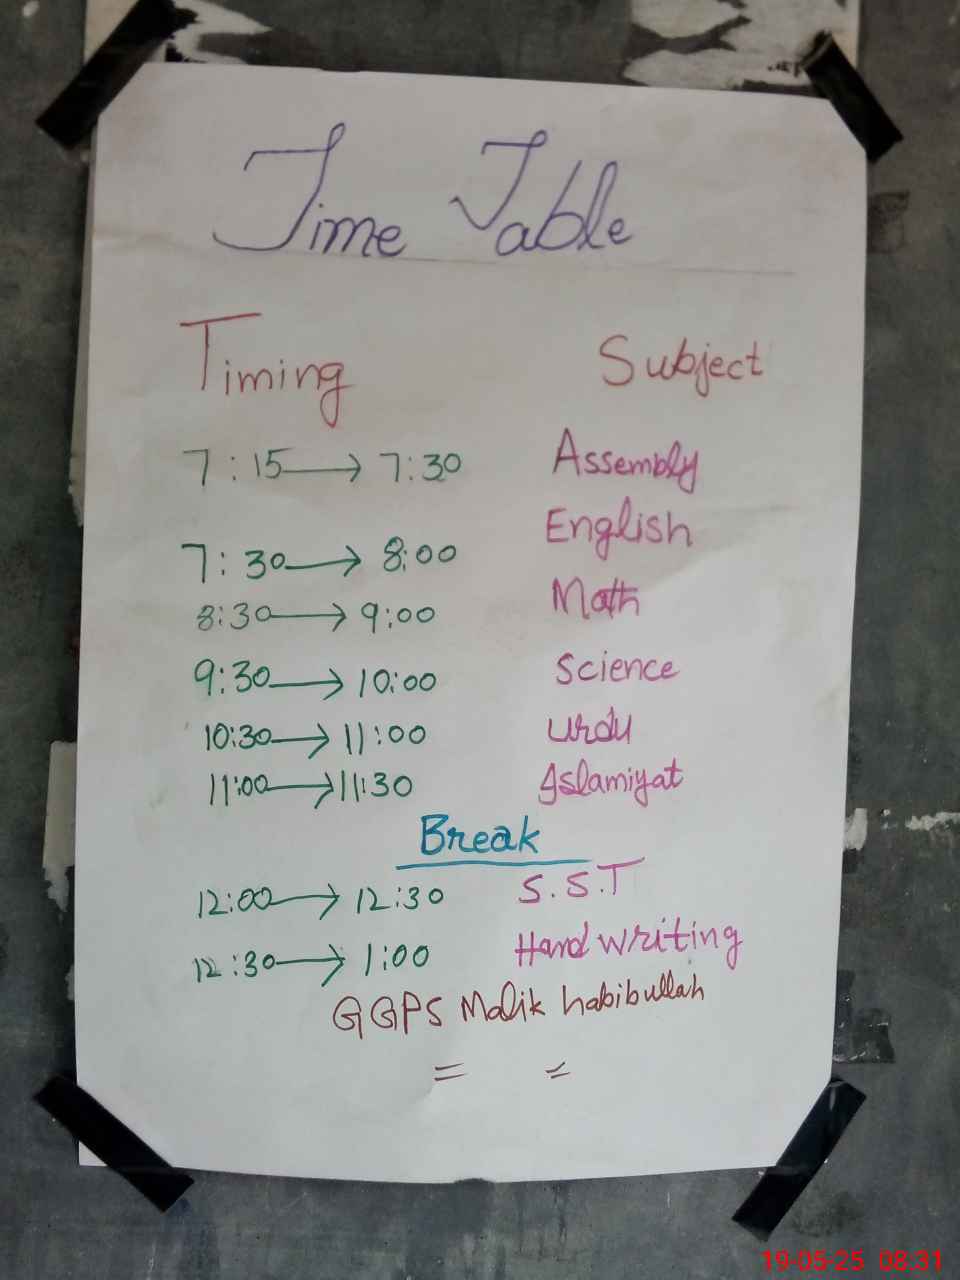 Time Table
Timing Subject
7:15 → 7:30 Assembly
7:30 → 8:00 English
8:30 → 9:00 Math
9:30 → 10:00 Science
10:30 → 11:00 Urdu
11:00 → 11:30 Islamiyat
Break
12:00 → 12:30 S.S.T
12:30 → 1:00 Hand writing
GGPS Malik habibullah
19-05-25 08:31